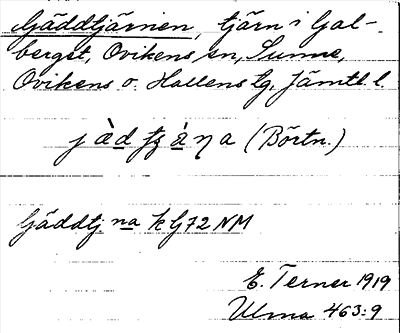 Gäddtjärnen, tjärn i Gal-
berget, Ovikens sn, Sunne,
Ovikens o. Hallens tg, Jämtl. l.
(Börtn.)
Gäddtj na k G72 NM
E. Terner 1919
Ulma 463:9